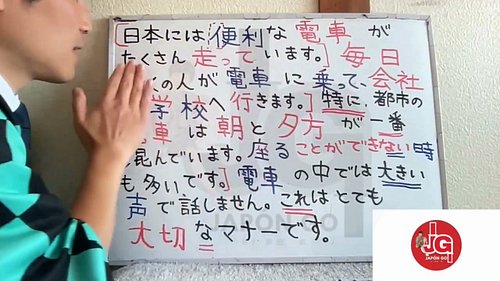 [日本には便利な電車が
たくさん走っています。]毎日
くの人が電車に乗って、会社
学校へ行きます。]特に、都市の
車は朝と夕方が一番
混んでいます。座ることができない時
も多いです。]電車の中では大きい
声で話しません。これはとても
大切なマナーです。
JAPÓN GO
JG
JAPÓN GO